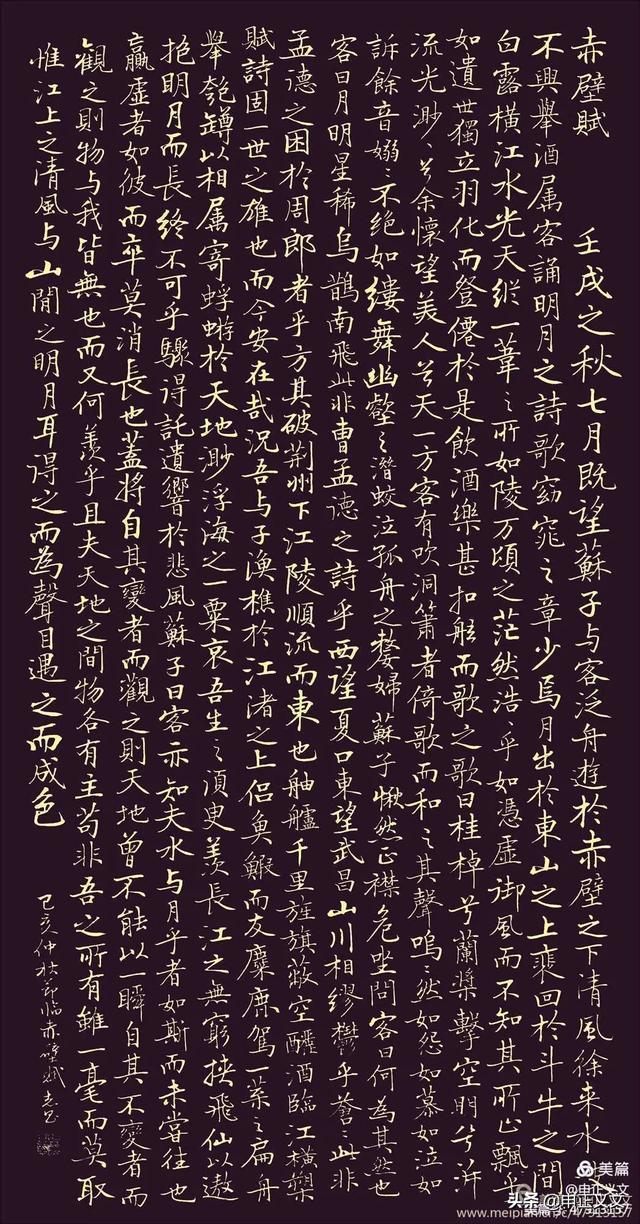 赤壁賦 壬戌之秋七月既望蘇子与客泛舟遊於赤壁之下清風徐来水
不興舉酒属客誦明月之詩歌窈窕之章少焉月出於東山之上裴回於斗牛之間
白露横江水光天縱一葦之所如陵万頃之茫然浩々乎如憑虚御風而不知其所止飄乎
如遺世獨立羽化而登僊於是飲酒樂甚扣舷而歌之歌曰桂棹兮蘭槳擊空明兮泝
流光渺々兮余懷望美人兮天一方客有吹洞簫者倚歌而和之其聲嗚々然如怨如慕如泣如
訴餘音嫋々不绝如縷舞幽壑之潛蛟泣孤舟之嫠婦蘇子愀然正襟危坐問客曰何為其然也
客曰月明星稀烏鵲南飛此非曹孟德之詩乎西望夏口東望武昌山川相繆欝乎蒼々此非
孟德之困於周郎者乎方其破荆州下江陵順流而東也舳艫千里旌旗蔽空釃酒臨江横槊
賦詩固一世之雄也而今安在哉況吾与子漁樵於江渚之上侣魚鰕而友麋鹿駕一葉之扁舟
舉匏罇以相属寄蜉蝣於天地渺浮海之一粟哀吾生之須臾羨長江之無窮挾飛仙以遨
抱明月而長終不可乎驟得託遺響於悲風蘇子曰客亦知夫水与月乎者如斯而未嘗往也
贏虚者如彼而卒莫消長也蓋將自其變者而觀之則天地曾不能以一瞬自其不變者而
觀之則物与我皆無也而又何羨乎且夫天地之間物各有主苟非吾之所有雖一毫而莫取
惟江上之清風与山間之明月耳得之而為聲目遇之而成色
己亥仲秋節临赤壁賦
美篇
头条 @申正文文